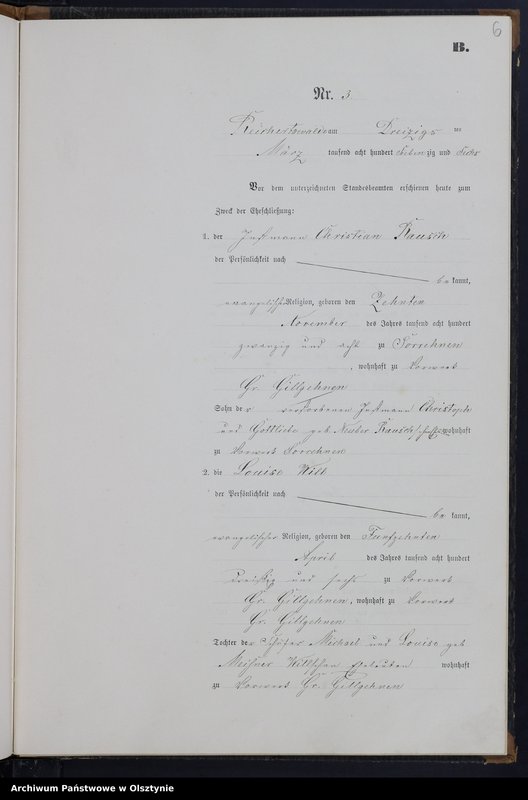 6
B.
Nr. 3
Reichertswalde am Dreizigs ten
März tausend acht hundert sieben zig und sechs
Vor dem unterzeichneten Standesbeamten erschienen heute zum
Zweck der Eheschließung:
1. der Instmann Christian Rausch
der Persönlichkeit nach
be kannt,
evangelischer Religion, geboren den Zehnten
November des Jahres tausend acht hundert
zwanzig und acht zu Sorrehnen
, wohnhaft zu Vorwerk
Gr. Gillgehnen
Sohn der verstorbenen Instmann Christoph
und Gottliebe geb. Neuber Rausch wohnhaft
zu Vorwerk Sorrehnen
2. die Louise Will
der Persönlichkeit nach
be kannt,
evangelischer Religion, geboren den Fünfzehnten
April des Jahres tausend acht hundert
dreißig und sechs zu Vorwerk
Gr. Gillgehnen, wohnhaft zu Vorwerk
Gr. Gillgehnen
Tochter der Schäfer Michael und Louise geb
Meißner Willschen Eheleuten wohnhaft
zu Vorwerk Gr. Gillgehnen
Archiwum Państwowe w Olsztynie